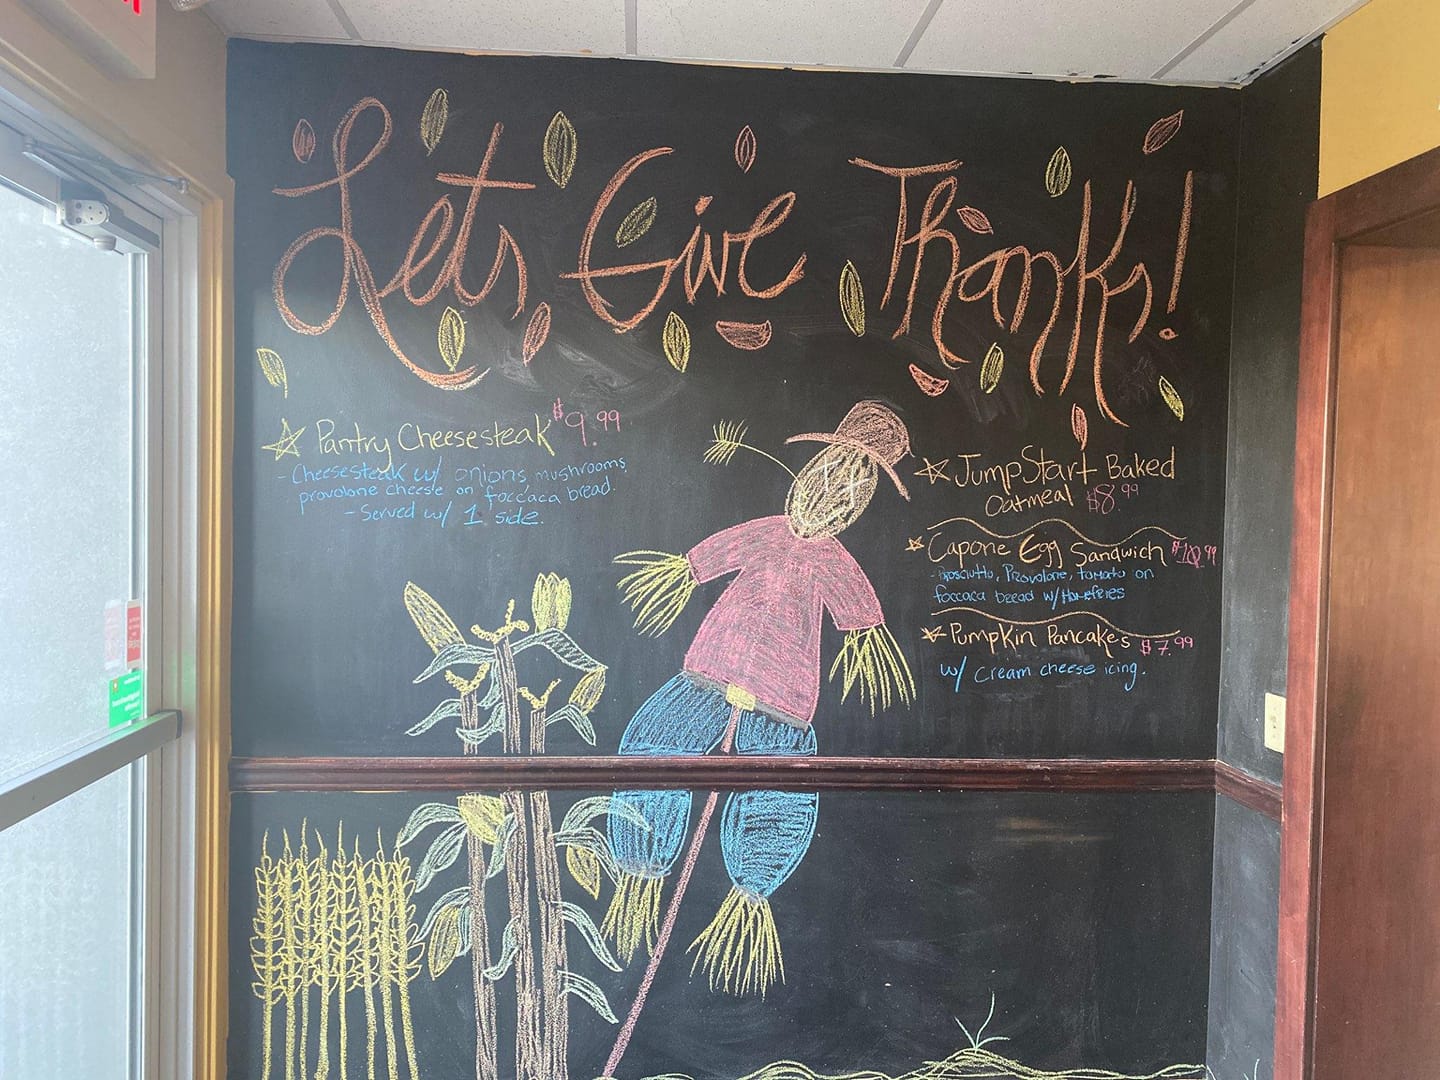 Let's Give Thanks!
Pantry Cheesesteak $9.99
- Cheesesteak w/ onions, mushrooms,
provolone cheese on foccaca bread.
- Served w/ 1 side.
JumpStart Baked
Oatmeal $8.99
Capone Egg Sandwich $10.99
- Prosciutto, Provolone, tomato on
foccaca bread w/ Homefries
Pumpkin Pancakes $7.99
w/ cream cheese icing.